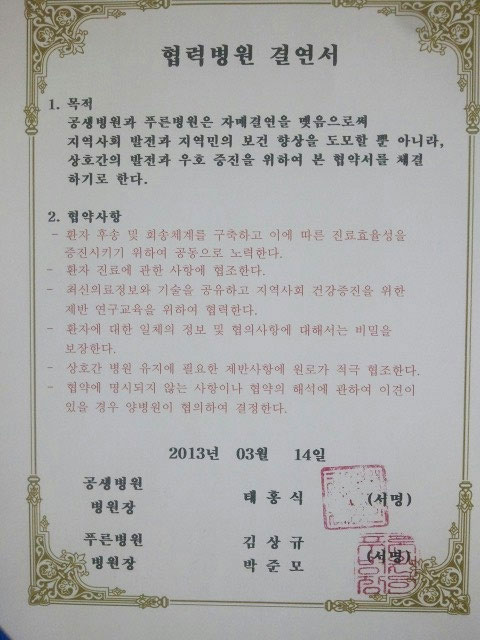 협력병원 결연서
1. 목적
공생병원과 푸른병원은 자매결연을 맺음으로써
지역사회 발전과 지역민의 보건 향상을 도모할 뿐 아니라,
상호간의 발전과 우호 증진을 위하여 본 협약서를 체결
하기로 한다.
2. 협약사항
- 환자 후송 및 회송체계를 구축하고 이에 따른 진료효율성을
증진시키기 위하여 공동으로 노력한다.
- 환자 진료에 관한 사항에 협조한다.
- 최신의료정보와 기술을 공유하고 지역사회 건강증진을 위한
제반 연구교육을 위하여 협력한다.
- 환자에 대한 일체의 정보 및 협의사항에 대해서는 비밀을
보장한다.
- 상호간 병원 유지에 필요한 제반사항에 원로가 적극 협조한다.
- 협약에 명시되지 않는 사항이나 협약의 해석에 관하여 이견이
있을 경우 양병원이 협의하여 결정한다.
2013년 03월 14일
공생병원
병원장 태 홍 식 (서명)
푸른병원 김 상 규
병원장 박 준 모 (서명)